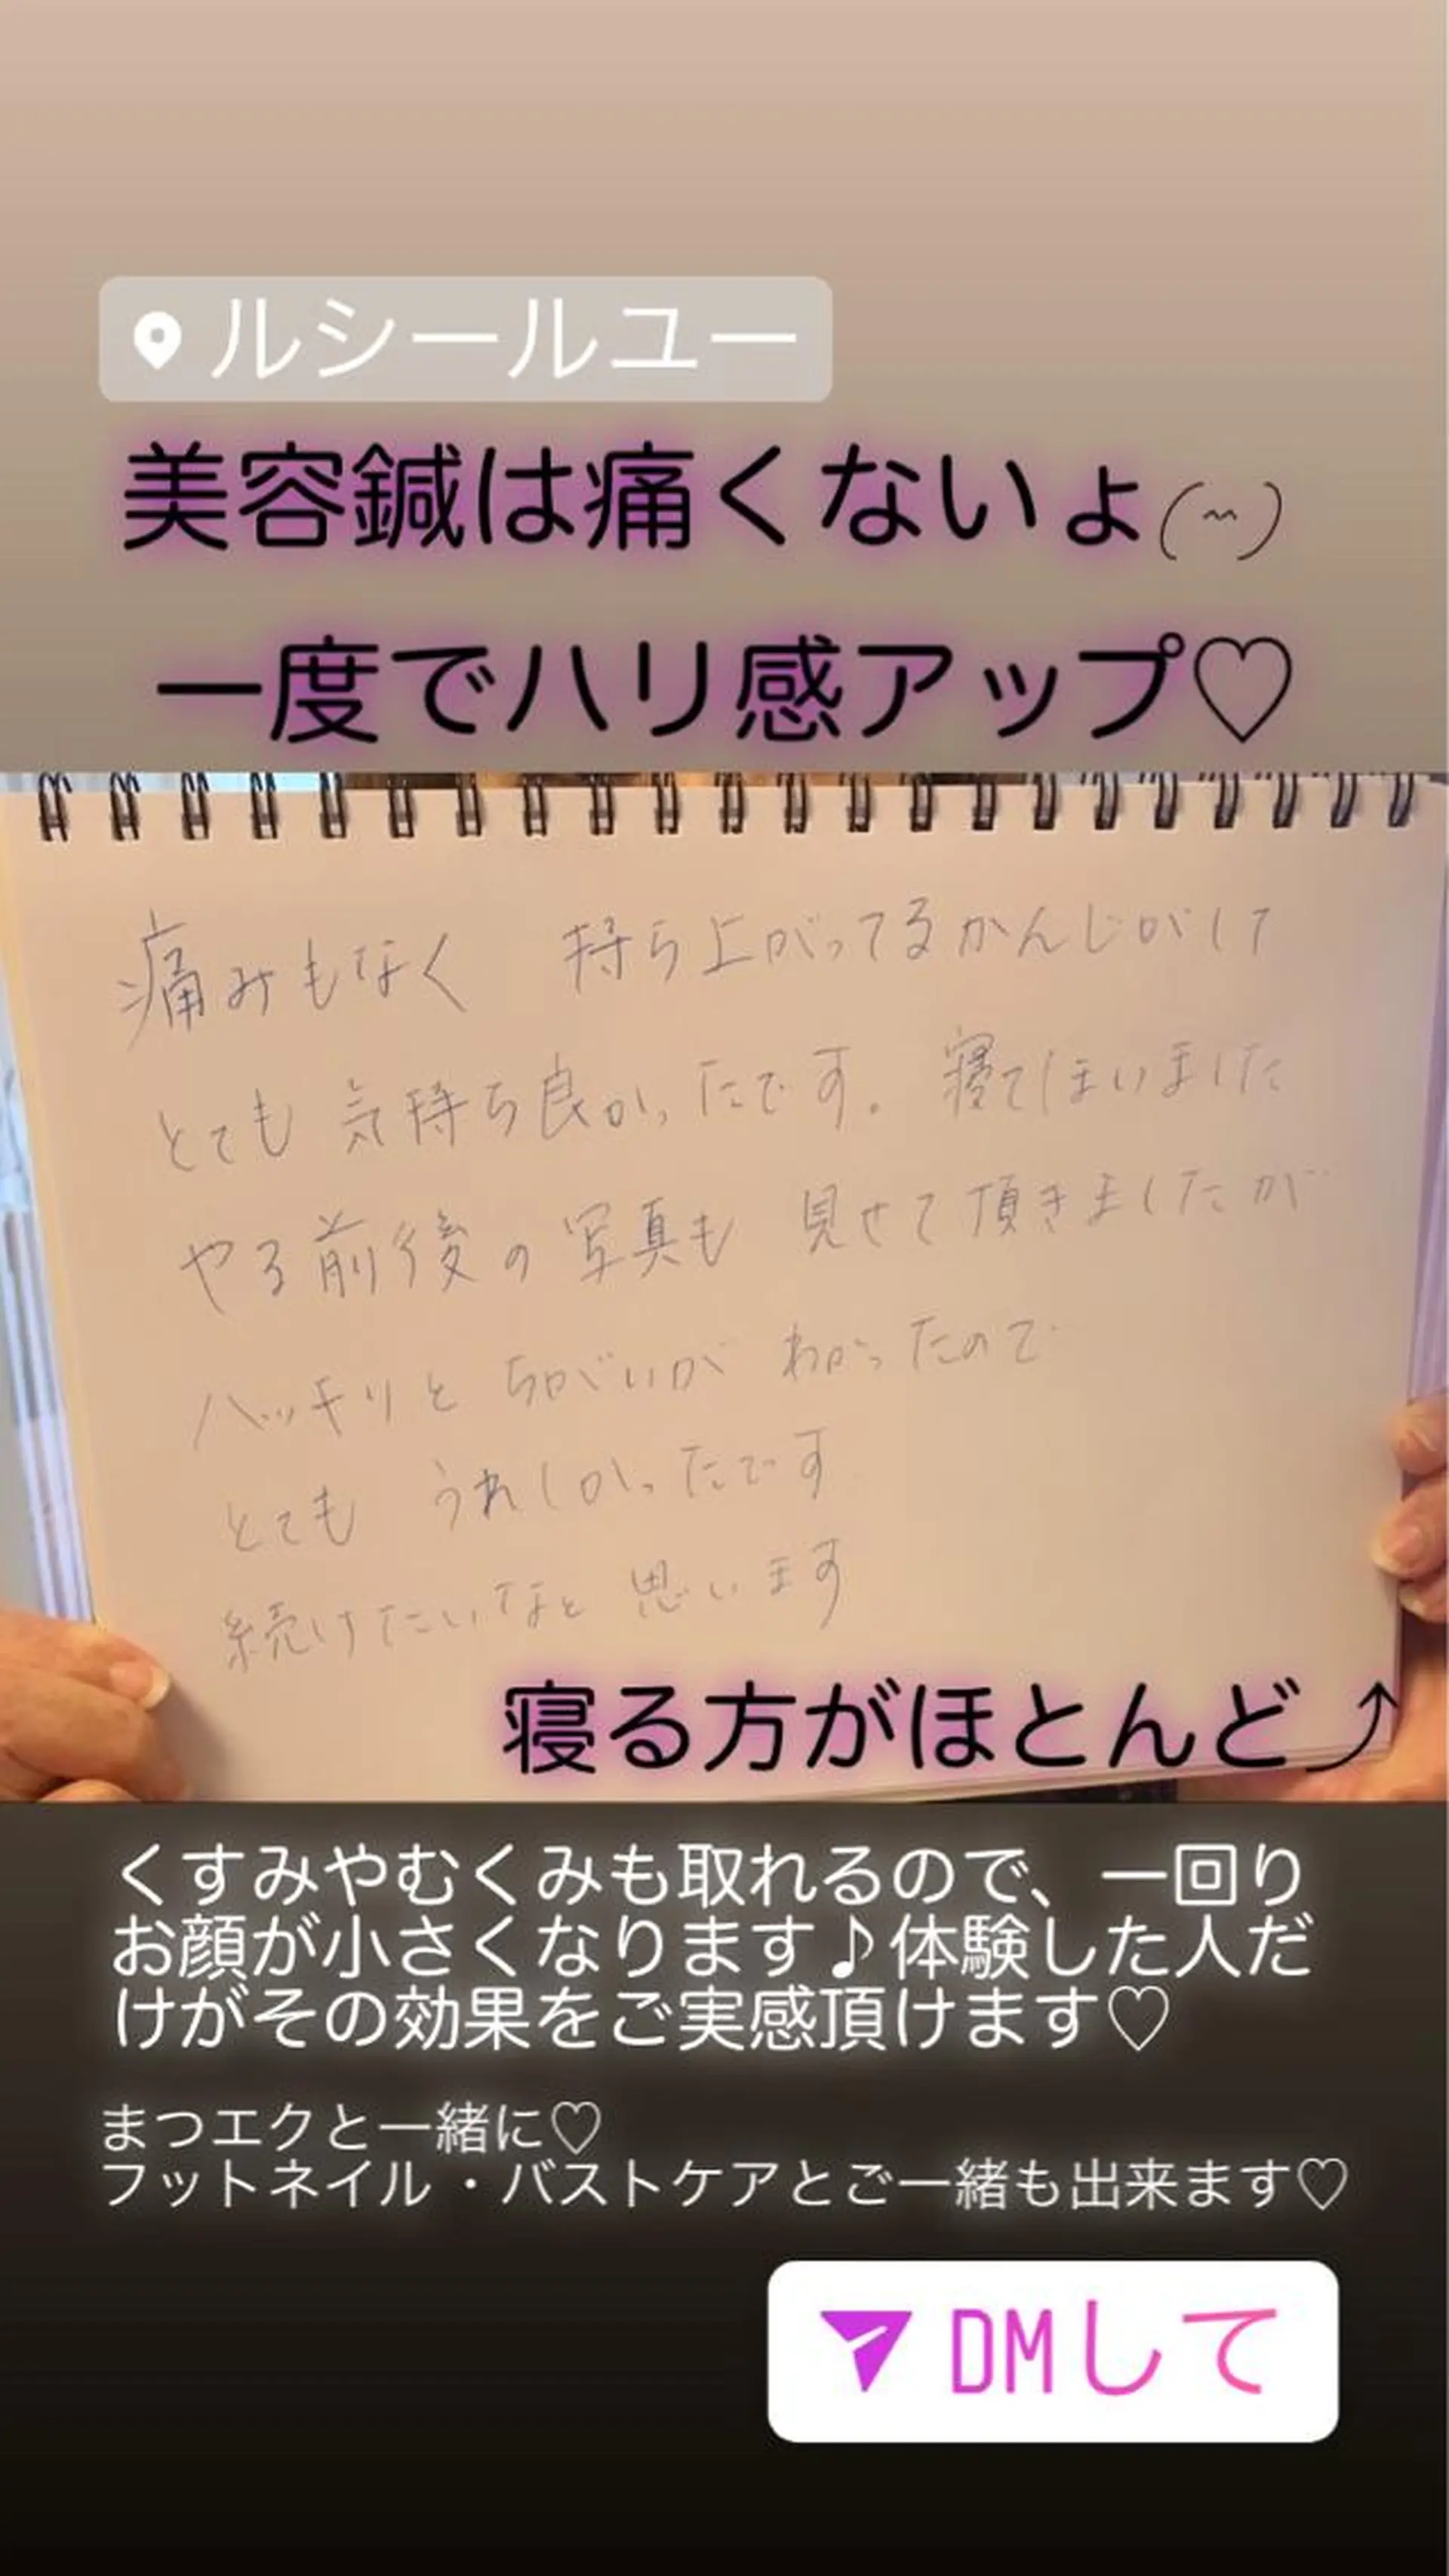 ルシールユー
美容鍼は痛くないょ(^^)
一度でハリ感アップ♡
痛みもなく 持ち上がってるかんじがして
とても 気持ち良かったです。寝てしまいました
やる前後の写真も 見せて頂きましたが
ハッキリと ちがいが わかったので
とても うれしかったです
続けたいなと 思います
寝る方がほとんど⤴
くすみやむくみも取れるので、一回り
お顔が小さくなります♪体験した人だ
けがその効果をご実感頂けます♡
まつエクと一緒に♡
フットネイル・バストケアとご一緒も出来ます♡
DMして